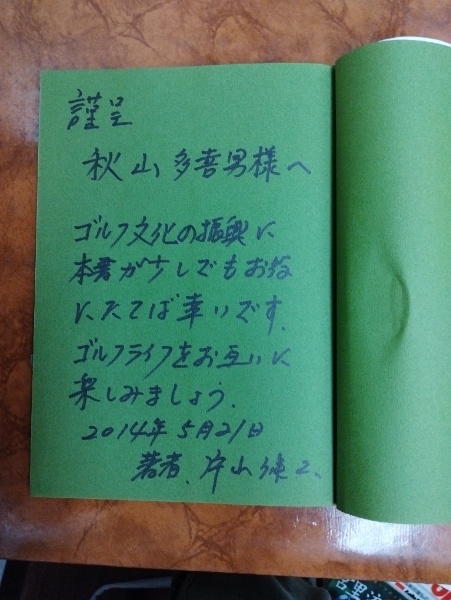 謹呈
秋山多喜男様へ
ゴルフ文化の振興に
本書が少しでもお役
にたてば幸いです.
ゴルフライフをお互いに
楽しみましょう.
2014年5月21日
著者、片山